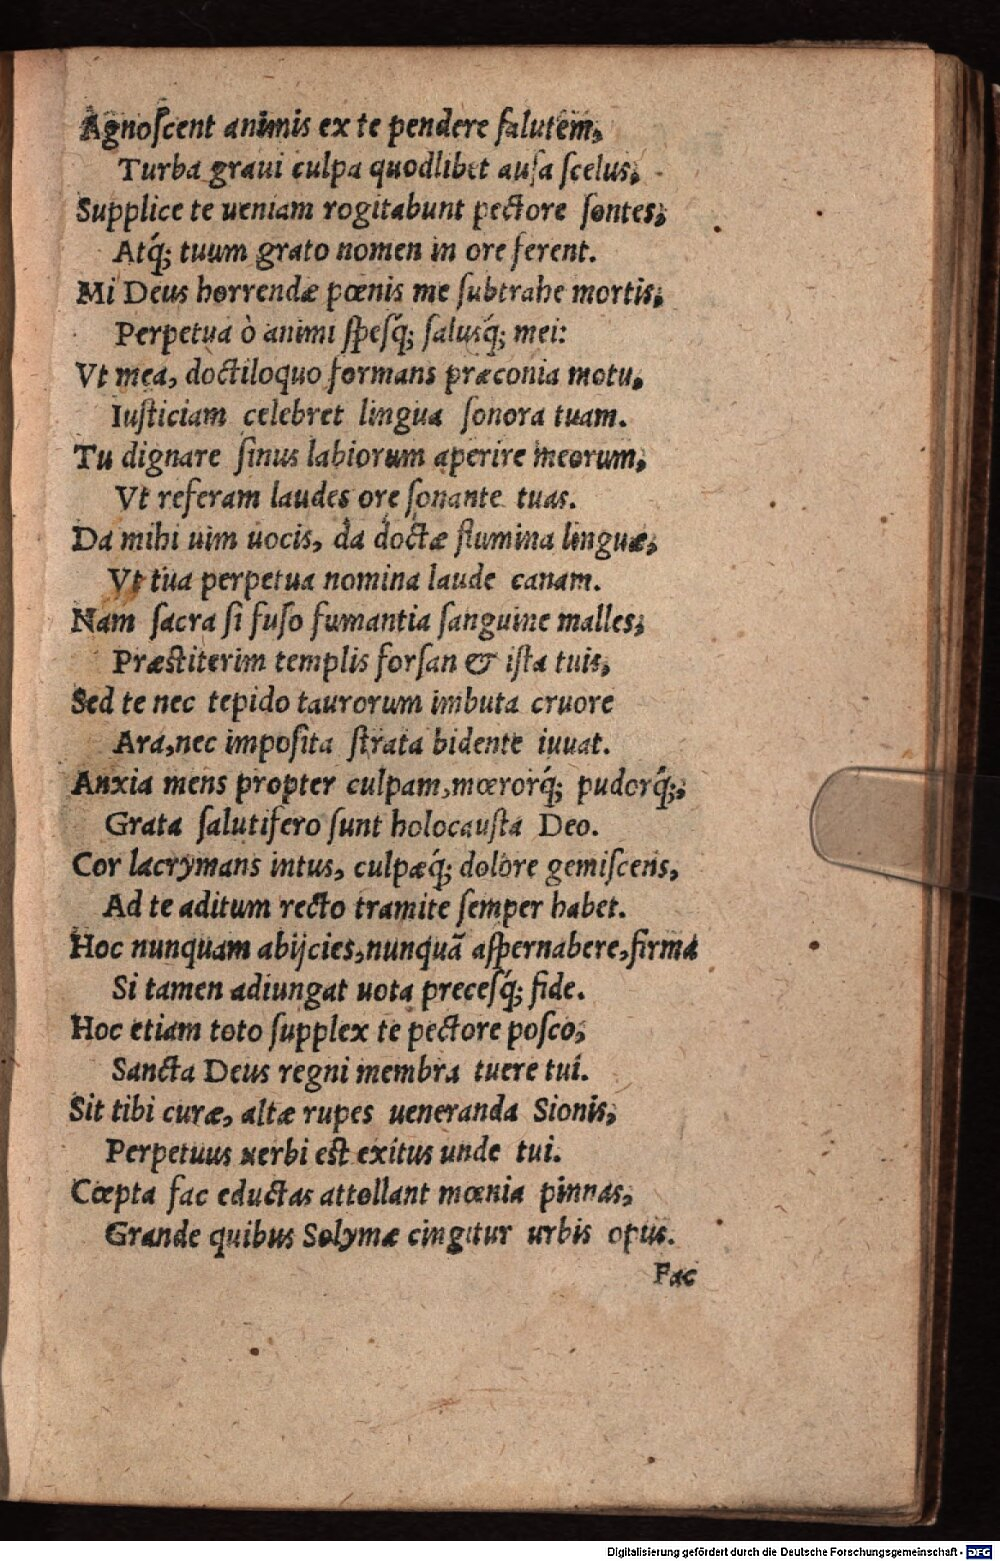 Agnoſcent animis ex te pendere ſalutem,
Turba graui culpa quodlibet auſa ſcelus,
Supplice te ueniam rogitabunt pectore ſontes,
Atq́; tuum grato nomen in ore ferent.
Mi Deus horrendæ pœnis me ſubtrahe mortis,
Perpetua ò animi ſpeſq́; ſalusq́; mei:
Vt mea, doctiloquo formans præconia motu,
Iuſticiam celebret lingua ſonora tuam.
Tu dignare ſinus labiorum aperire meorum,
Vt referam laudes ore ſonante tuas.
Da mihi uim uocis, da doctæ flumina linguæ,
Vt tua perpetua nomina laude canam.
Nam ſacra ſi fuſo fumantia ſanguine malles,
Præſtiterim templis forſan & iſta tuis,
Sed te nec tepido taurorum imbuta cruore
Ara, nec impoſita ſtrata bidente iuuat.
Anxia mens propter culpam, mœrorq́; pudorq́;,
Grata ſalutifero ſunt holocauſta Deo.
Cor lacrymans intus, culpæq́; dolore gemiſcens,
Ad te aditum recto tramite ſemper habet.
Hoc nunquam abijcies, nunquã aſpernabere, firma
Si tamen adiungat uota preceſq́; fide.
Hoc etiam toto ſupplex te pectore poſco,
Sancta Deus regni membra tuere tui.
Sit tibi curæ, altæ rupes ueneranda Sionis,
Perpetuus uerbi eſt exitus unde tui.
Cœpta fac eductas attollant mœnia pinnas,
Grande quibus Solymæ cingitur urbis opus.
Fac
Digitalisierung gefördert durch die Deutsche Forschungsgemeinschaft - DFG